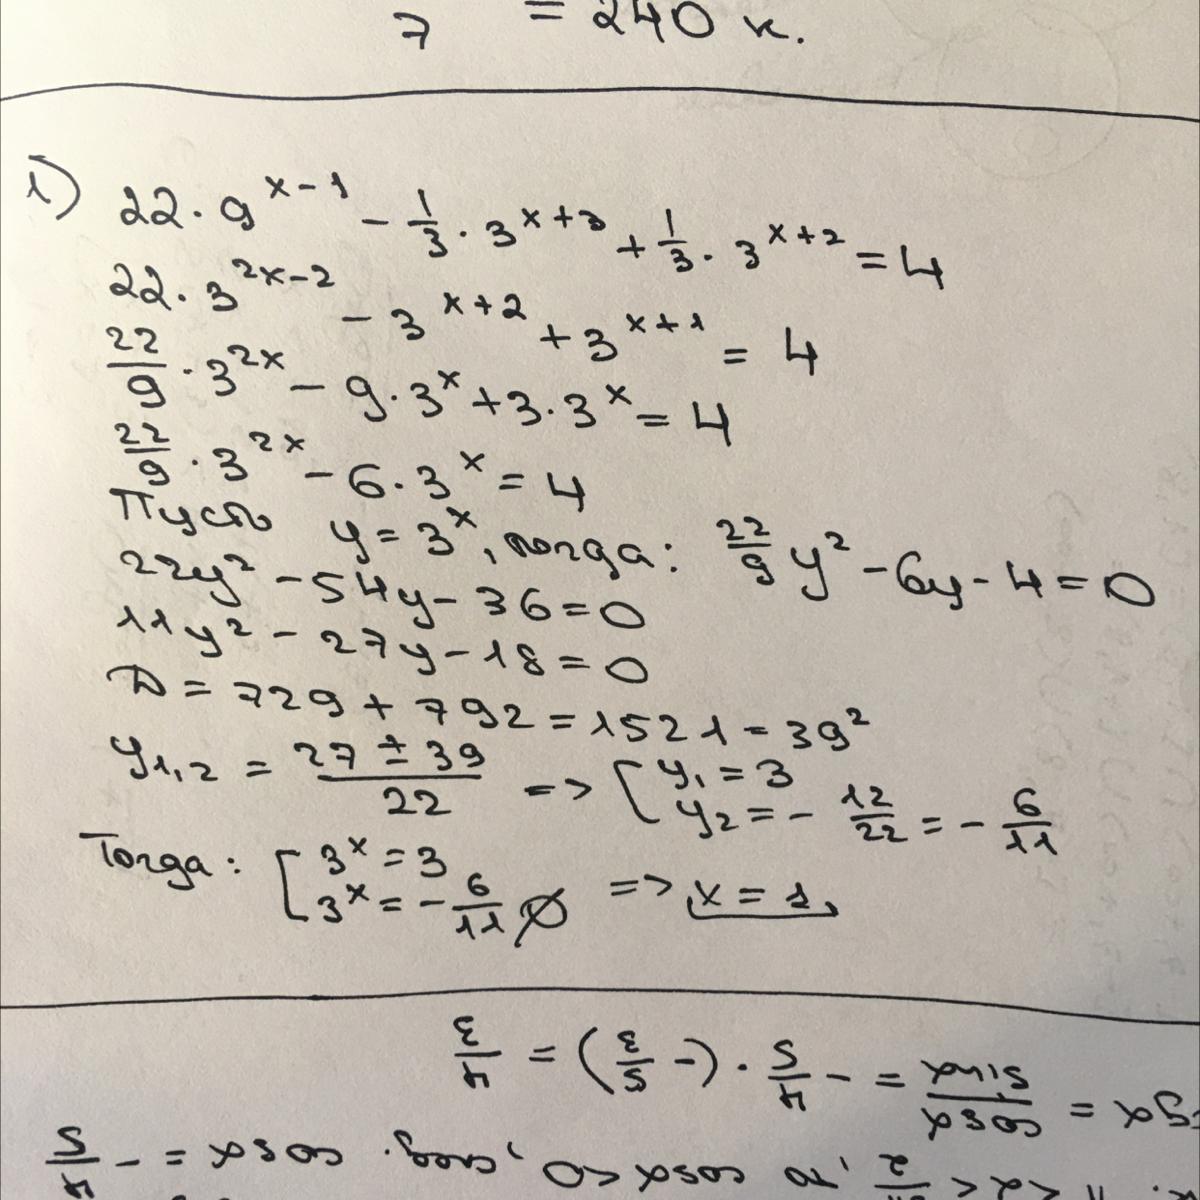 7 = 240 к.
1) 22 · 9^(x-1) - 1/3 · 3^(x+3) + 1/3 · 3^(x+2) = 4
22 · 3^(2x-2) - 3^(x+2) + 3^(x+1) = 4
22/9 · 3^(2x) - 9 · 3^x + 3 · 3^x = 4
22/9 · 3^(2x) - 6 · 3^x = 4
Пусть y = 3^x, тогда: 22/9 y² - 6y - 4 = 0
22y² - 54y - 36 = 0
11y² - 27y - 18 = 0
D = 729 + 792 = 1521 = 39²
y1,2 = (27 ± 39)/22 => [ y1 = 3
y2 = - 12/22 = - 6/11
Тогда: [ 3^x = 3
3^x = - 6/11 ∅ => x = 1
gx = sinx/cosx = - 4/5 · (- 5/3) = 4/3
2, то cosx < 0, след. cosx = -